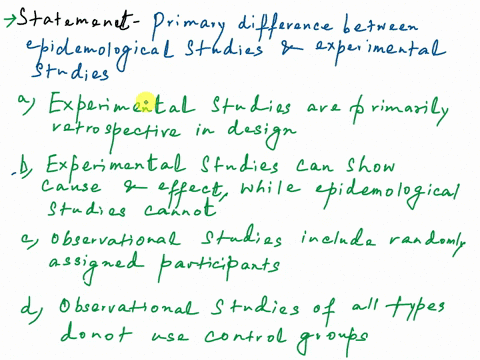 → Statement - Primary difference between
epidemological Studies & experimental
Studies
a) Experimental Studies are primarily
retrospective in design
b) Experimental Studies can show
cause & effect, while epidemological
Studies cannot
c) Observational Studies include randomly
assigned participants
d) Observational Studies of all types
donot use control groups